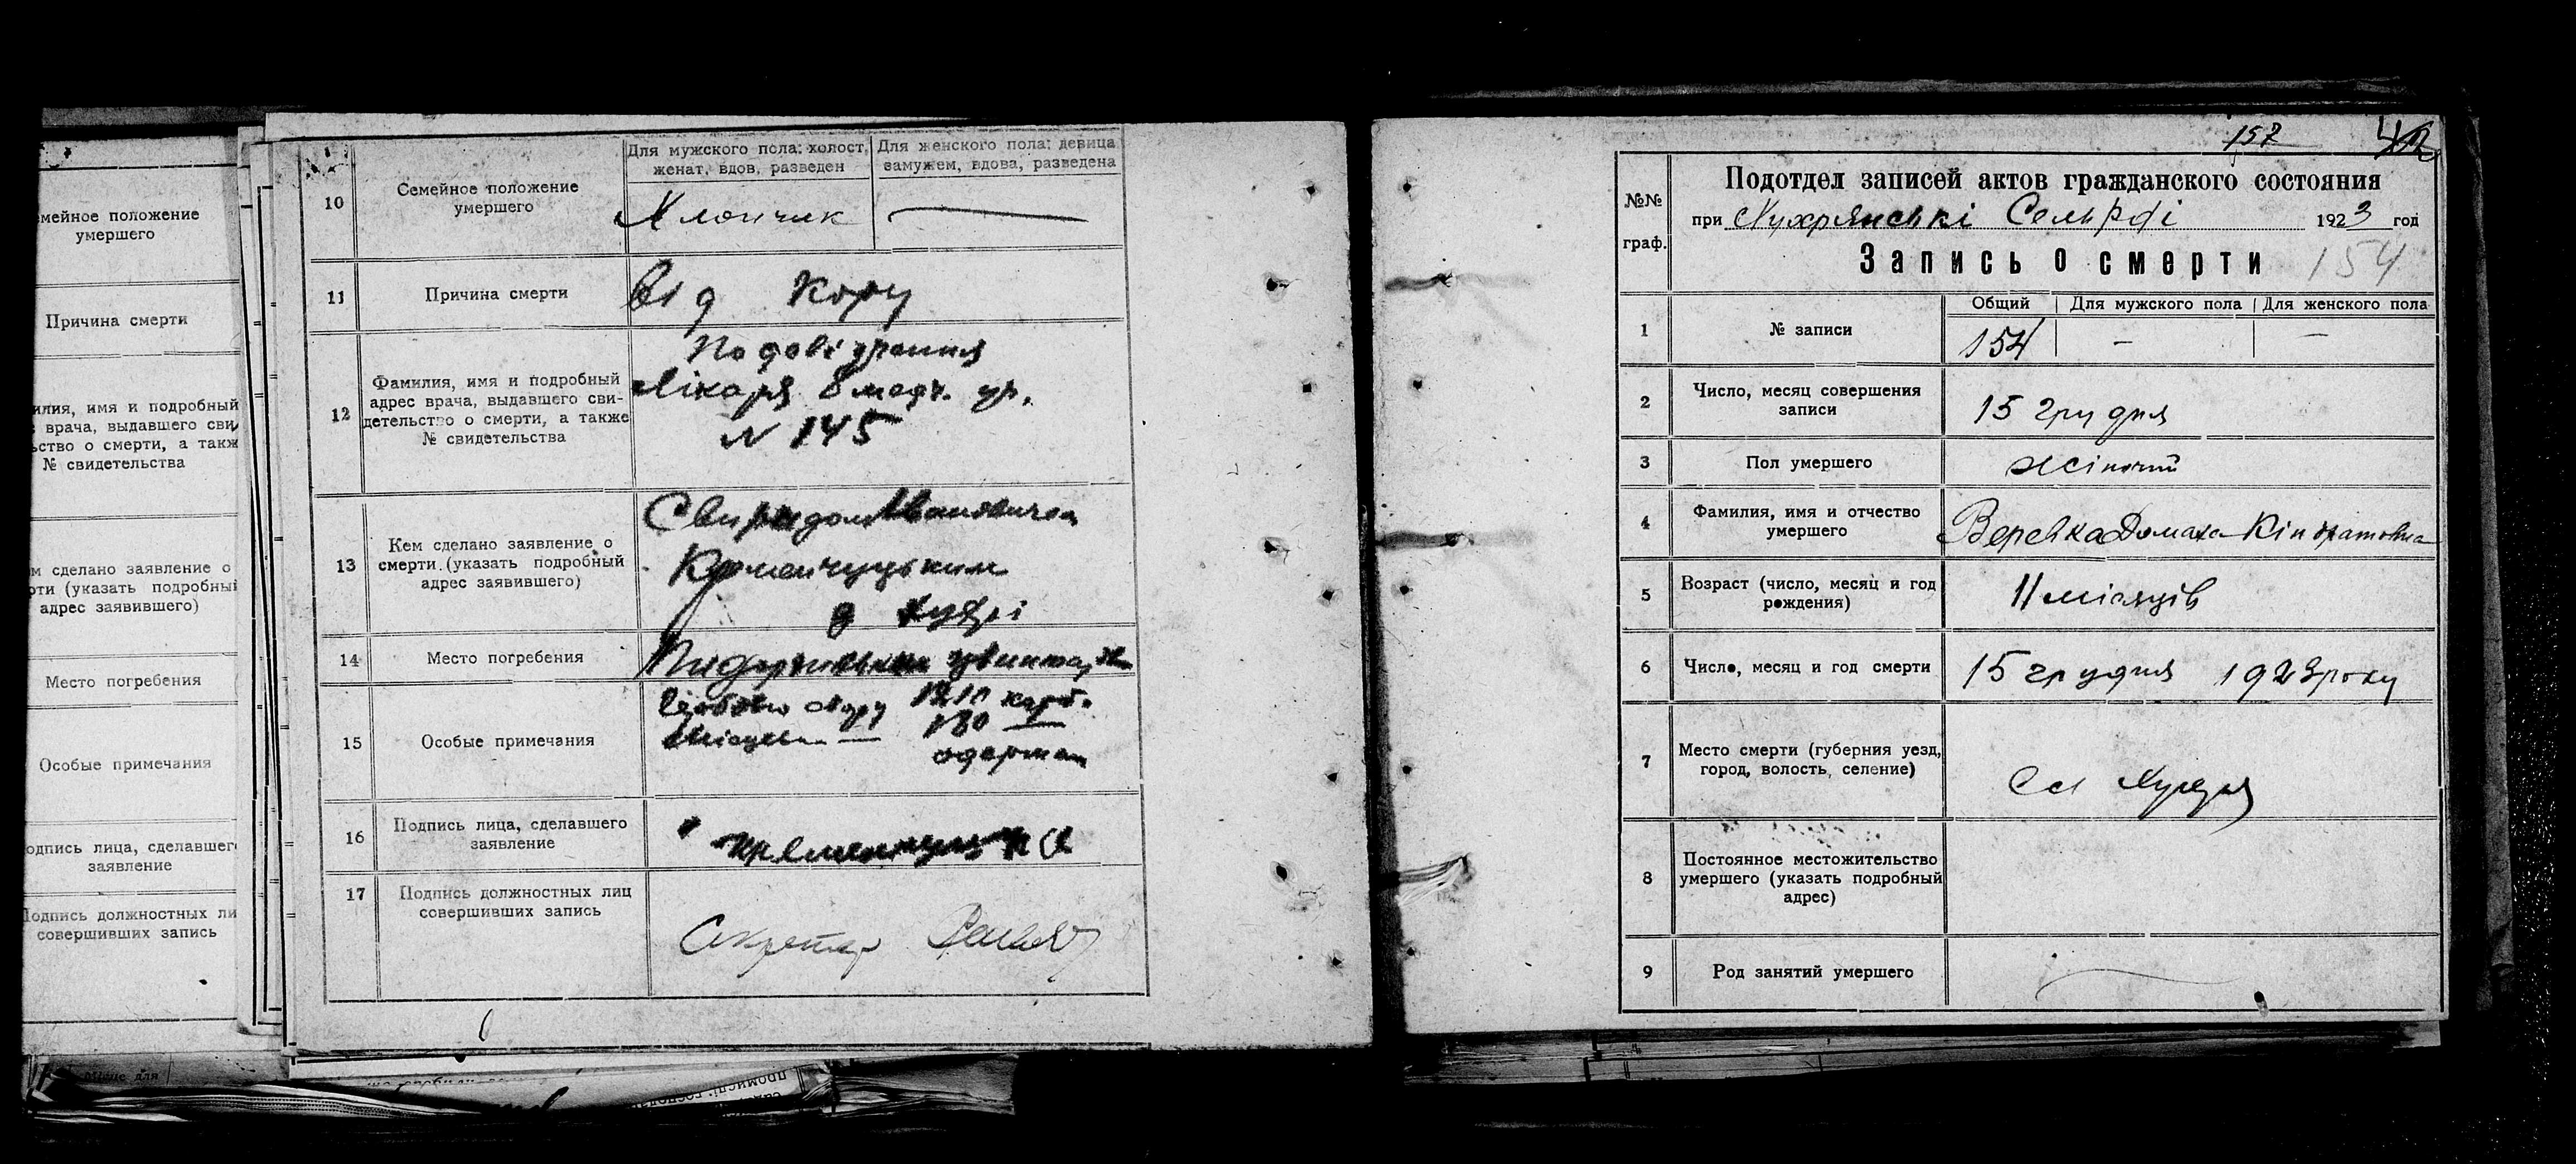 мейное положение
умершего
Причина смерти
илия, имя и подробный
врача, выдавшего сви
ьство о смерти, а такж
№ свидетельства
м сделано заявление о
рти (указать подробный
адрес заявившего)
Место погребения
Особые примечания
одпись лица, сделавшего
заявление
Подпись должностных ли
совершивших запись
10
Семейное положение
умершего
Для мужского пола: холост,
женат, вдов, разведен
Для женского пола: девица
замужем, вдова, разведена
Хлопчик
11
Причина смерти
Від Кору
12
Фамилия, имя и подробный
адрес врача, выдавшего сви-
детельство о смерти, а также
№ свидетельства
По
Лікаря 8
N 145
13
Кем сделано заявление о
смерти (указать подробный
адрес заявившего)
Свиридом Івановичем
Кременчуцьким
14
Место погребения
15
Особые примечания
карб.
180
16
Подпись лица, сделавшего
заявление
17
Подпись должностных лиц
совершивших запись
Секретар
157
№№
граф.
Подотдел записей актов гражданского состояния
при Сельраді 1923 год
Запись о смерти 154
1
№ записи
Общий Для мужского пола Для женского пола
154 — —
2
Число, месяц совершения
записи
15 грудня
3
Пол умершего
жіночий
4
Фамилия, имя и отчество
умершего
Веревка Домаха Кіндратовна
5
Возраст (число, месяц и год
рождения)
11 місяців
6
Число, месяц и год смерти
15 грудня 1923 року
7
Место смерти (губерния уезд,
город, волость, селение)
8
Постоянное местожительство
умершего (указать подробный
адрес)
9
Род занятий умершего